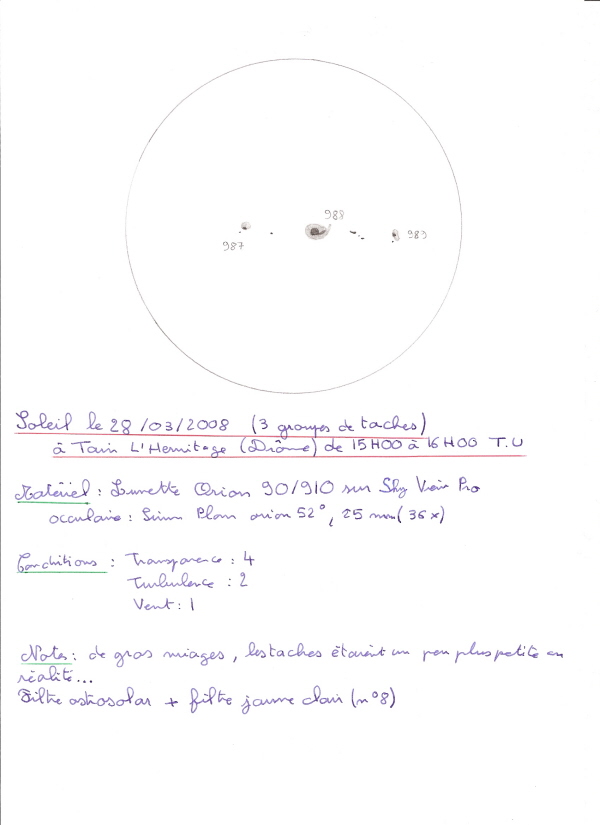 988
987
989
Soleil le 28/03/2008 (3 groupes de taches)
à Tain L'Hermitage (Drôme) de 15H00 à 16H00 T.U
Matériel : Lunette Orion 90/910 sur Sky View Pro
occulaire : Sirius Plossl orion 52°, 25 mm (36x)
Conditions : Transparence : 4
Turbulence : 2
Vent : 1
Notes : de gros nuages, les taches étaient un peu plus petite en
réalité...
Filtre astrosolar + filtre jaune clair (n°8)